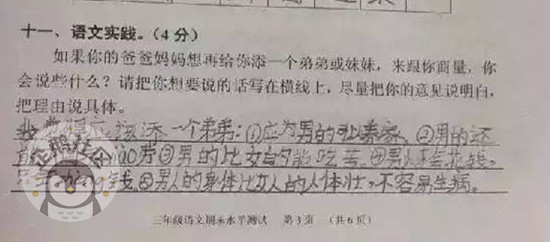 十一、语文实践。(4分)
如果你的爸爸妈妈想再给你添一个弟弟或妹妹，来跟你商量，你
会说些什么？请把你想要说的话写在横线上，尽量把你的意见说明白，
把理由说具体。
我觉得应该添一个弟弟：①应为男的 养家，②男的还
100岁③男的比女自勺能吃苦。④男人不乱花钱，
钱⑤男人的身体比女人的人体壮，不容易生病。
企鹅社会
三年级语文期末水平测试 第3页 (共6页)